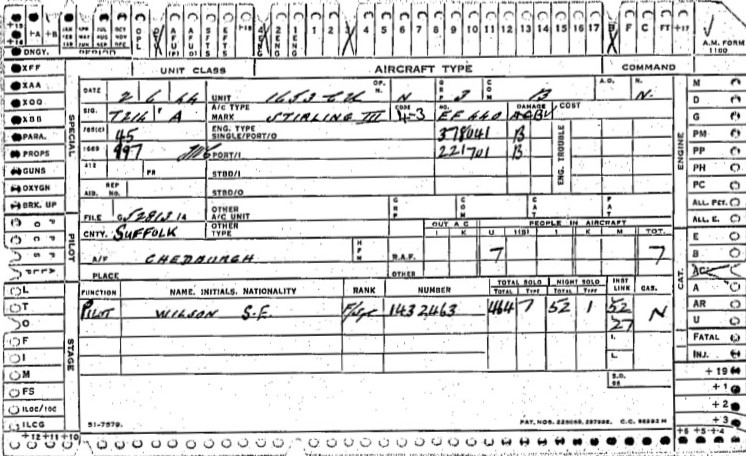 +13 +14 +A +B JAN FEB MAR APL MAY JUN JUL AUG SEP OCT NOV DEC OPL SFTS EFTS +18 2 ENG 1 ENG 4 5 6 7 8 9 10 11 12 13 14 15 16 17 B F C FT +17
DNGY. PERIOD A.M. FORM 1180
UNIT CLASS AIRCRAFT TYPE COMMAND
XFF
XAA
XOO
XBB
PARA.
PROPS
GUNS
OXYGN
BRK. UP
SPECIAL
PILOT
STAGE
L
T
O
F
I
M
FS
ILOC/IOC
ILCG
+12 +11 +10
DATE 2 6 44 UNIT 1653 CU OP. N. N GRP 3 COM B A.O. N. N.
SIG. T216 A A/C TYPE MARK STIRLING III CODE 4-3 NO. EF 440 DAMAGE COST
765(C) 45 ENG. TYPE SINGLE/PORT/O 378041 B ENG. TROUBLE
1669 997 PORT/I 221701 B
412 PR STBD/I
AIB. REP NO. STBD/O
FILE OTHER A/C UNIT GRP COM CAT FAT
CNTY. SUFFOLK OTHER TYPE OUT A C PEOPLE IN AIRCRAFT
I K U I(S) I K M TOT.
A/F CHEDBURGH R.A.F. 7 7
PLACE OTHER
FUNCTION NAME. INITIALS. NATIONALITY RANK NUMBER TOTAL SOLO NIGHT SOLO INST LINK CAS.
TOTAL TYPE TOTAL TYPE
PILOT WILSON S.F. F/Sgt 1432463 464 7 52 1 52 N
27
I.
L.
51-7579. PAT. NOS.
ENGINE
M
D
G
PM
PP
PH
PC
ALL PCT.
ALL E.
CAT.
E
B
AC
A
AR
U
FATAL
INJ.
+19
+1
+2
+3
+6 +5 +4